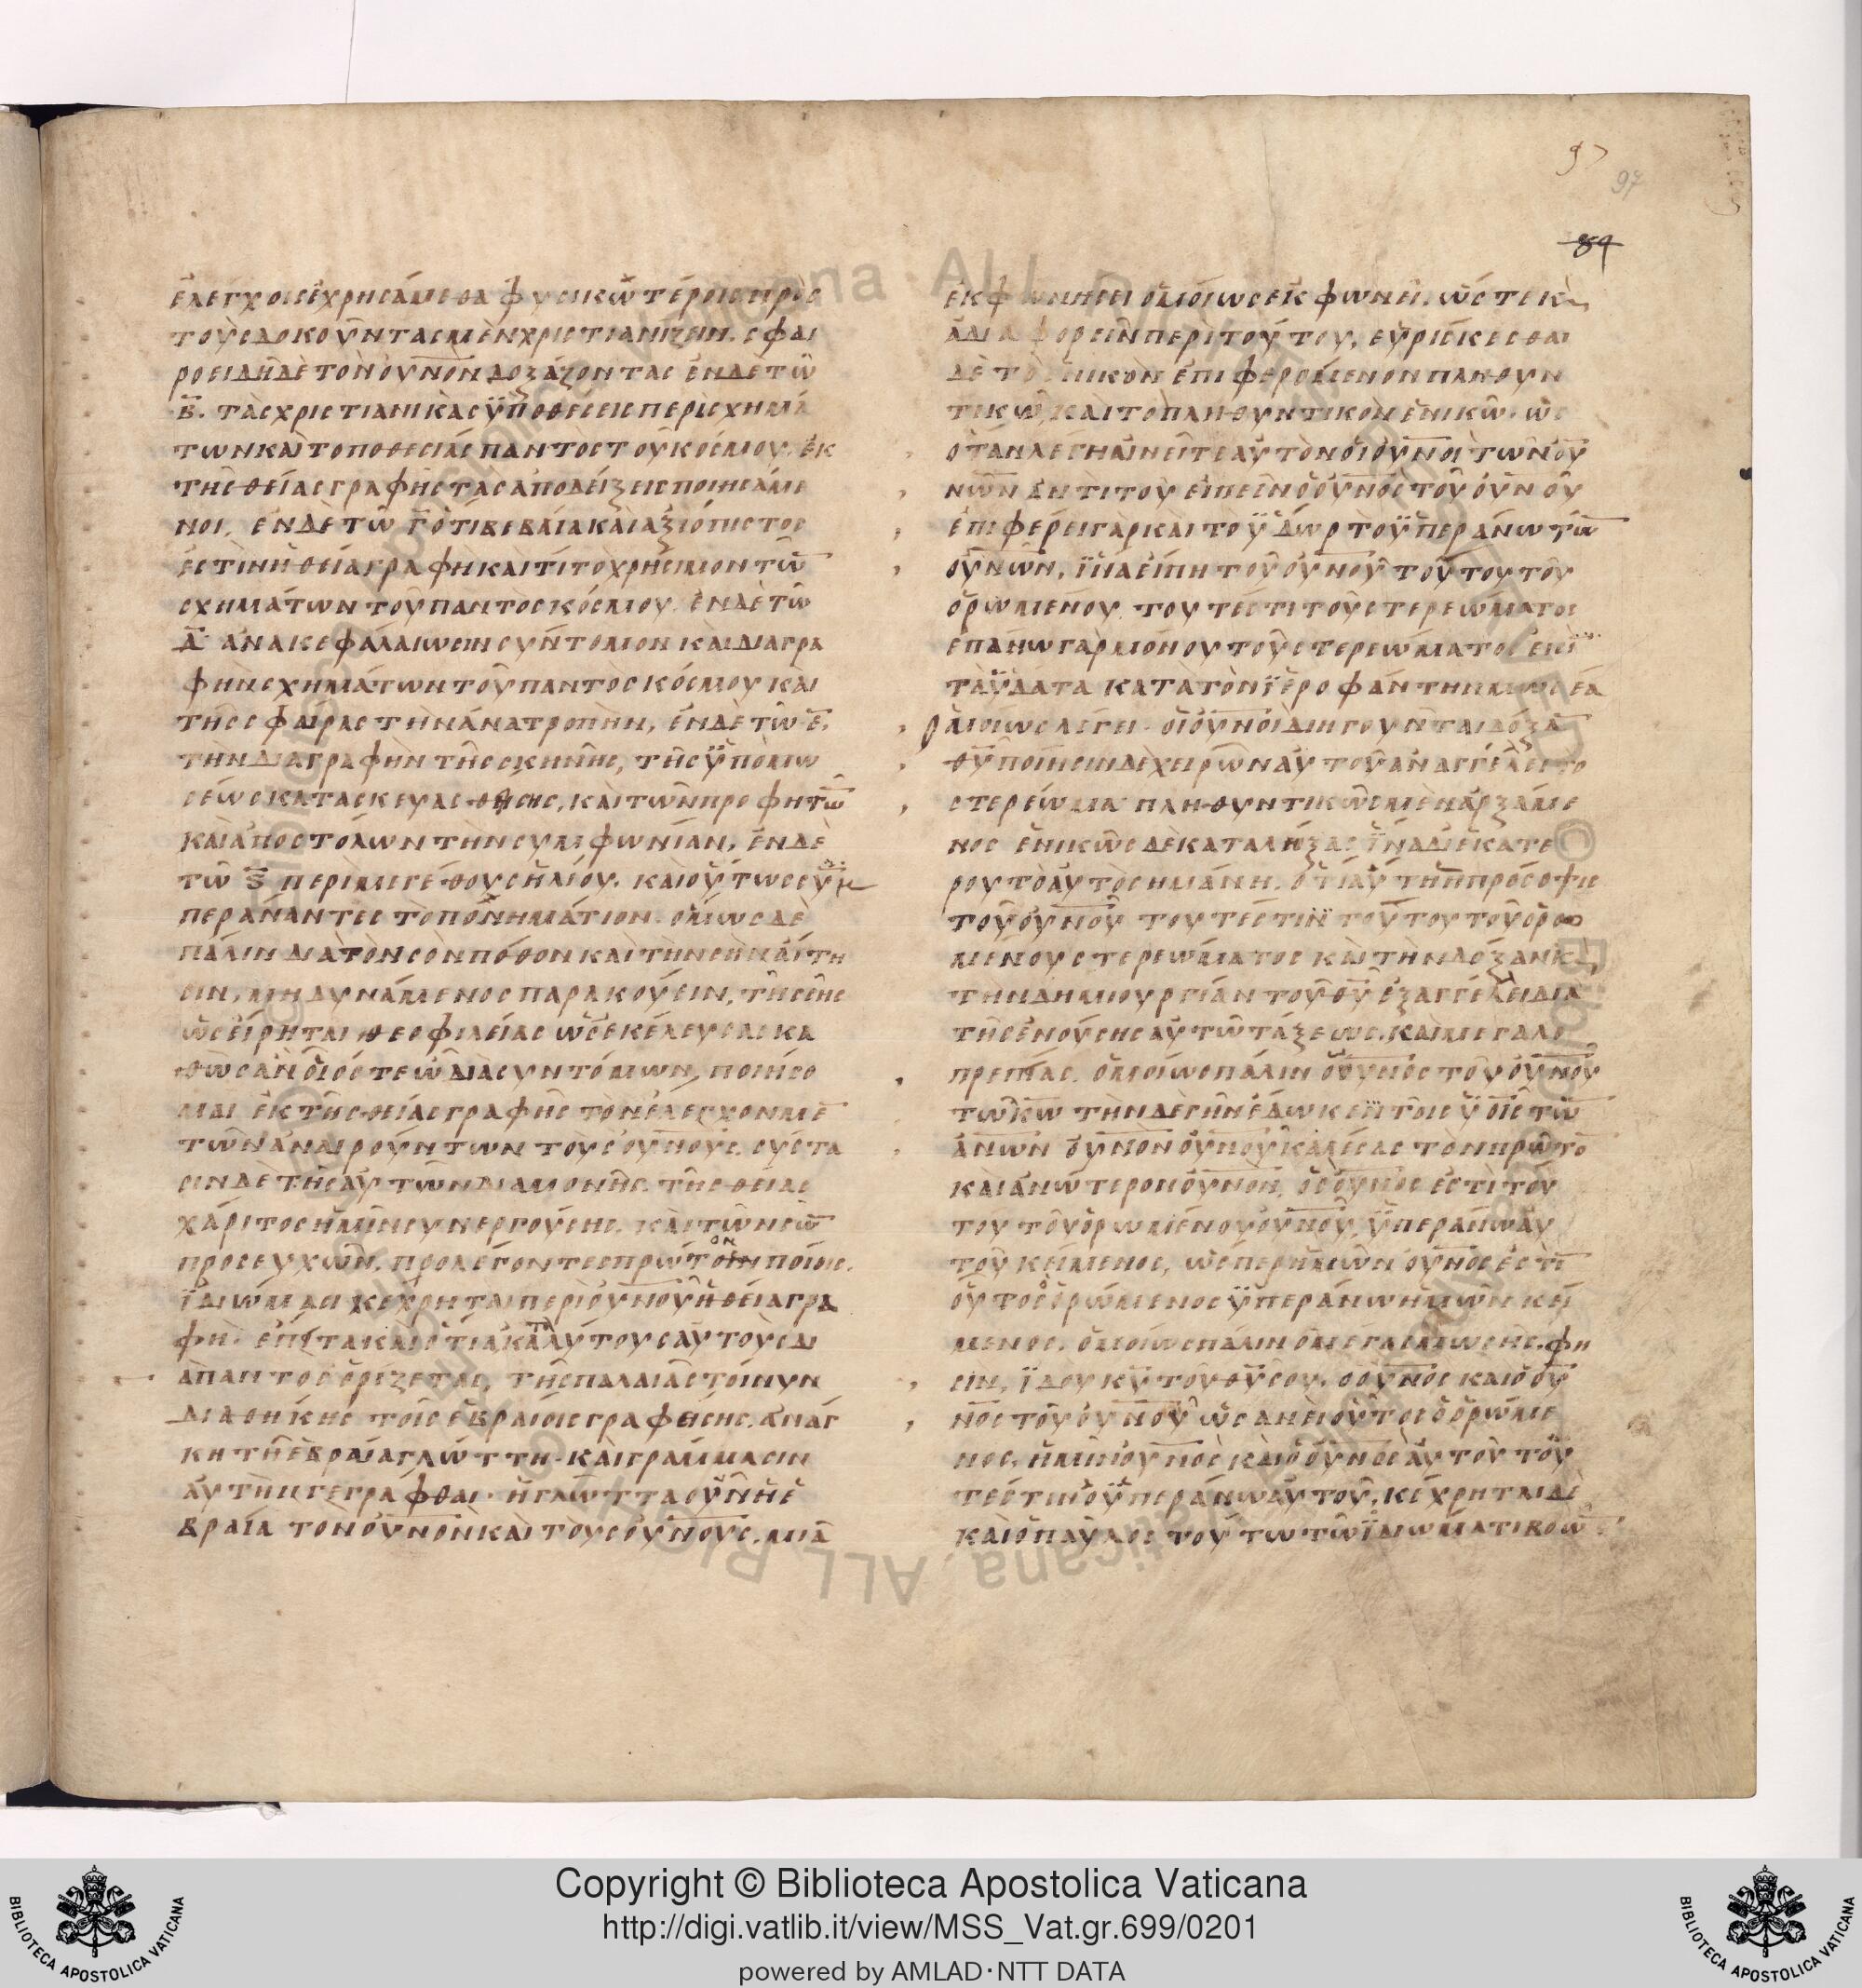 97
97
89
ἐλέγχοις ἐχρησάμεθα φυσικωτέροις πρὸς
τοὺς δοκοῦντας μὲν χριστιανίζειν, σφαι
ροειδῆ δὲ τὸν οὐνὸν δοξάζοντας ἐν δὲ τῶ
Β. τὰς χριστιανικὰς ὑποθέσεις περὶ σχημά
των καὶ τοποθεσίας παντὸς τοῦ κόσμου, ἐκ
τῆς θείας γραφῆς τὰς ἀποδείξεις ποιησάμε
νοι, ἐν δὲ τῶ Γ ὅτι βεβαία καὶ ἀξιόπιστος
ἐστὶν ἡ θεία γραφὴ καὶ τί τὸ χρήσιμον τῶ
σχημάτων τοῦ παντὸς κόσμου, ἐν δὲ τῶ
Δ ἀνακεφαλαίωσιν σύντομον καὶ διαγρα
φὴν σχημάτων τοῦ παντὸς κόσμου καὶ
τῆς σφαίρας τὴν ἀνατροπὴν, ἐν δὲ τῶ Ε.
τὴν διαγραφὴν τῆς σκηνῆς, τῆς ὑπὸ μω
σέως κατασκευασθησης, καὶ τῶν προφητῶ
καὶ ἀποστόλων τὴν συμφωνίαν, ἐν δὲ
τῶ Ϛ περὶ μεγέθους ἡλίου. καὶ οὕτως συμ
περάναντες τὸ πονημάτιον. ὅμως δὲ
πάλιν διὰ τὸν σὸν πόθον καὶ τὴν σὴν αἴτη
σιν, μὴ δυνάμενος παρακούειν, τῆς σῆς
ὡς εἴρηται θεοφιλείας ὡς ἐκέλευσας κα
θὼς ἂν οἷός τε ὦ διὰ συντόμων, ποιήσο
μαι ἐκ τῆς θείας γραφῆς τὸν ἔλεγχον μὲ
τῶν ἀναιρούντων τοὺς οὐνούς, σύστα
σιν δὲ τῆς αὐτῶν διαμονῆς. τῆς θείας
χάριτος ἡμῖν συνεργούσης. καὶ τῶν σῶ
προσευχῶν, προλέγοντες πρῶτον ποίοις,
ἰδιώμασι κέχρηται περὶ οὐνοῦ ἡ θεία γρα
φή. ἔπιτα καὶ ὅτι ἀκαταλύτους αὐτοὺς δι
ἀπαντὸς ὁρίζεται, τῆς παλαιᾶς τοίνυν
διαθήκης τοῖς ἑβραίοις γραφείσης. ἀνάγ
κη τῆ ἑβραία γλώττη καὶ γράμμασιν
αὐτὴν γεγράφθαι. ἡ γλῶττα οὖν ἡ ἑ
βραία τὸν οὐνὸν καὶ τοὺς οὐνούς, μιᾶ
ἐκφωνήσει ὁμοίως ἐκφωνεῖ, ὥστε κ
ἀδιαφορεῖν περὶ τούτου, εὑρίσκεσθαι
δὲ τὸ ἑνικὸν ἐπιφερόμενον πληθυν
τικῶ, καὶ τὸ πληθυντικὸν ἑνικῶ. ὡς
ὅταν λέγη αἰνεῖτε αὐτὸν οἱ οὐνοὶ τῶν οὐ
νῶν ἀντὶ τοῦ εἰπεῖν ὁ οὐνὸς τοῦ οὐνοῦ
ἐπιφέρει γὰρ καὶ τὸ ὕδωρ τὸ ὑπεράνω τῶ
οὐνῶν, ἵνα εἴπη τοῦ οὐνοῦ τούτου τοῦ
ὁρωμένου τουτέστι τοῦ στερεώματος
ἐπάνω γὰρ μόνου τοῦ στερεώματος εἰσὶ
τὰ ὕδατα κατὰ τὸν ἱεροφάντην μωσέα
ὁμοίως λέγει. οἱ οὐνοὶ διηγοῦνται δόξα
θῦ ποίησιν δὲ χειρῶν αὐτοῦ ἀναγγέλει τὸ
στερέωμα πληθυντικῶς μὲν ἀρξάμε
νος ἑνικῶς δὲ καταλήξας ἵνα δι' ἑκατέ
ρου τὸ αὐτὸ σημάνη. ὅτι αὐτὴ ἡ πρόσοψις
τοῦ οὐνοῦ τουτέστιν τούτου τοῦ ὁρω
μένου στερεώματος καὶ τὴν δόξαν κ
τὴν δημιουργίαν τοῦ θῦ ἐξαγγέλει διὰ
τῆς ἐνούσης αὐτῶ τάξεως, καὶ μεγαλο
πρεπίας. ὁμοίως πάλιν ὁ οὐνὸς τοῦ οὐνοῦ
τῶ κω τὴν δὲ γῆν ἔδωκεν τοῖς υἱοῖς τῶ
ἀνων οὐνὸν οὐνοῦ καλέσας τὸν πρῶτο
καὶ ἀνώτερον οὐνὸν, ὃς οὐνός ἐστι τού
του τοῦ ὁρωμένου οὐνοῦ, ὑπεράνω αὐ
τοῦ κείμενος, ὥσπερ ἡμῶν οὐνός ἐστι
οὗτος ὁ ὁρώμενος ὑπεράνω ἡμῶν κεί
μενος. ὁμοίως πάλιν ὁ μέγας μωσῆς, φη
σιν, ἰδοὺ κῦ τοῦ θῦ σου, ὁ οὐνὸς καὶ ὁ οὐ
νὸς τοῦ οὐνοῦ ὡσανεὶ οὗτος ὁ ὁρώμε
νος, ἡμῖν οὐνὸς καὶ ὁ οὐνὸς αὐτοῦ του
τέστιν ὁ ὑπεράνω αὐτοῦ, κέχρηται δὲ
καὶ ὁ παῦλος τούτω τῶ ἰδιώματι βοῶ
Copyright © Biblioteca Apostolica Vaticana
http://digi.vatlib.it/view/MSS_Vat.gr.699/0201
powered by AMLAD·NTT DATA
BIBLIOTECA APOSTOLICA VATICANA
BIBLIOTECA APOSTOLICA VATICANA